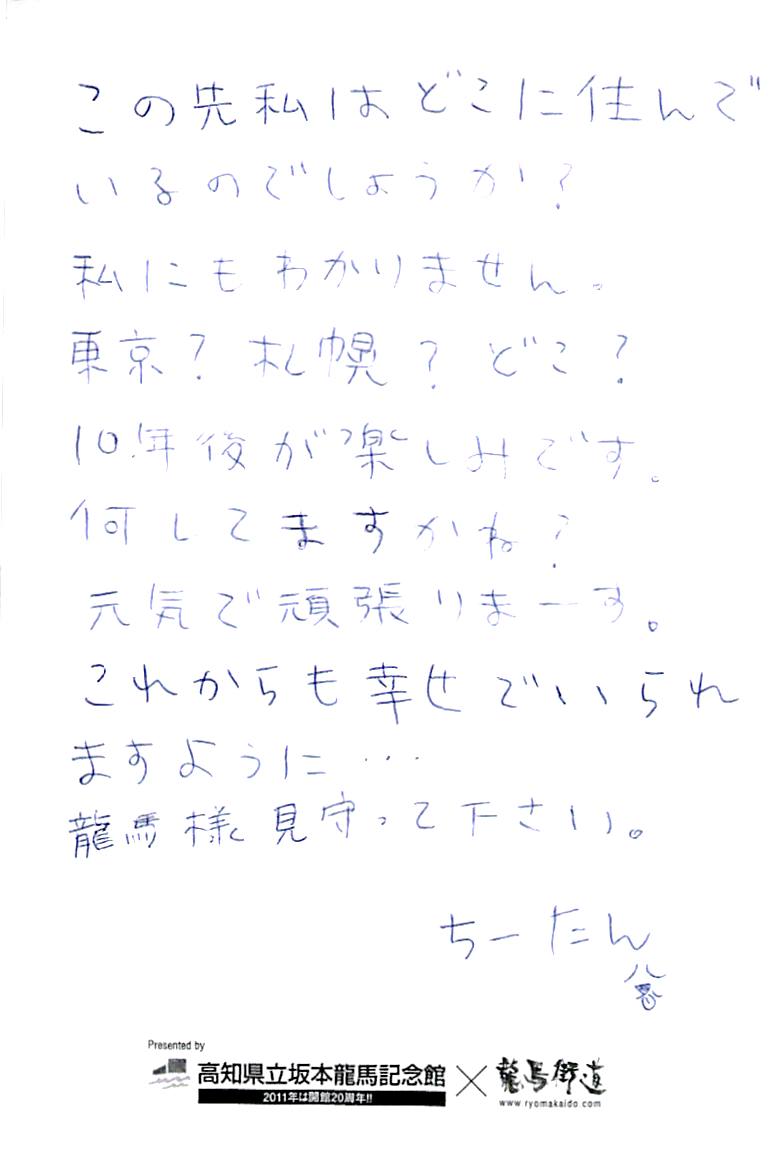 この先私はどこに住んで
いるのでしょうか?
私にもわかりません。
東京?札幌?どこ?
10年後が楽しみです。
何してますかね?
元気で頑張りまーす。
これからも幸せでいられ
ますように…
龍馬様見守って下さい。
ちーたん
Presented by
高知県立坂本龍馬記念館 × 龍馬街道
2011年は開館20周年!!
www.ryomakaido.com